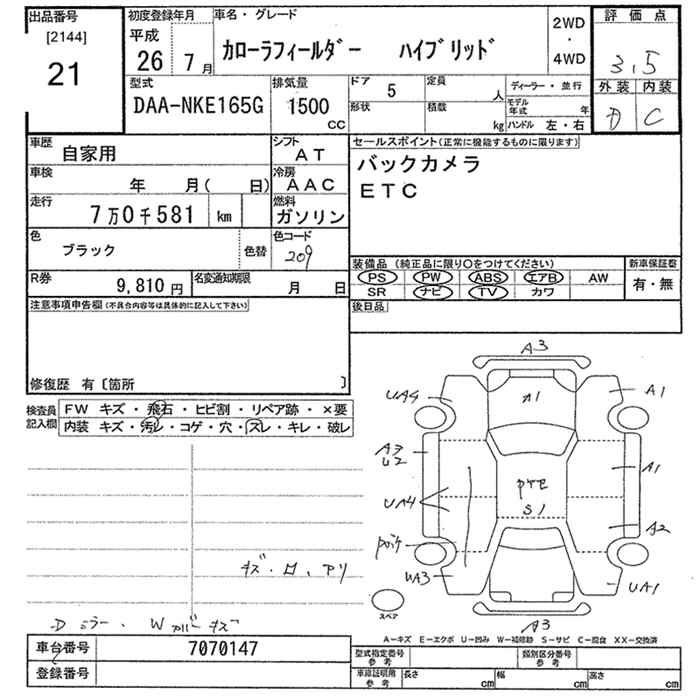 出品番号
[2144]
21
初度登録年月
平成
26年7月
車名・グレード
カローラフィールダー ハイブリッド
2WD
・
4WD
評価点
3.5
外装 内装
D C
型式
DAA-NKE165G
排気量
1500
CC
ドア 5
定員 人
形状
積載 kg
ディーラー・並行
モデル年式 年
ハンドル 左・右
車歴
自家用
シフト
AT
車検
年 月( 日)
冷房
AAC
走行
7万0千581 km
燃料
ガソリン
色
ブラック
色替
色コード
209
R券
9,810円
名変通知期限
月 日
セールスポイント(正常に機能するものに限ります)
バックカメラ
ETC
装備品 (純正品に限り○をつけてください)
PS PW ABS エアB AW
SR ナビ TV カワ
新車保証書
有・無
後日品
注意事項申告欄(不具合内容等は具体的に記入して下さい)
修復歴 有〔箇所 〕
検査員
記入欄
FW キズ・飛石・ヒビ割・リペア跡・×要
内装 キズ・汚レ・コゲ・穴・スレ・キレ・破レ
A3
UA4
A1
A1
A3
U2
A1
UA4
S1
A2
UA3
UA1
A3
スペア
Dミラー・W
A-キズ E-エクボ U-凹み W-補修跡 S-サビ C-腐食 XX-交換済
車台番号
7070147
登録番号
型式指定番号
参考
類別区分番号
参考
車庫証明用
参考
長さ cm
幅 cm
高さ cm